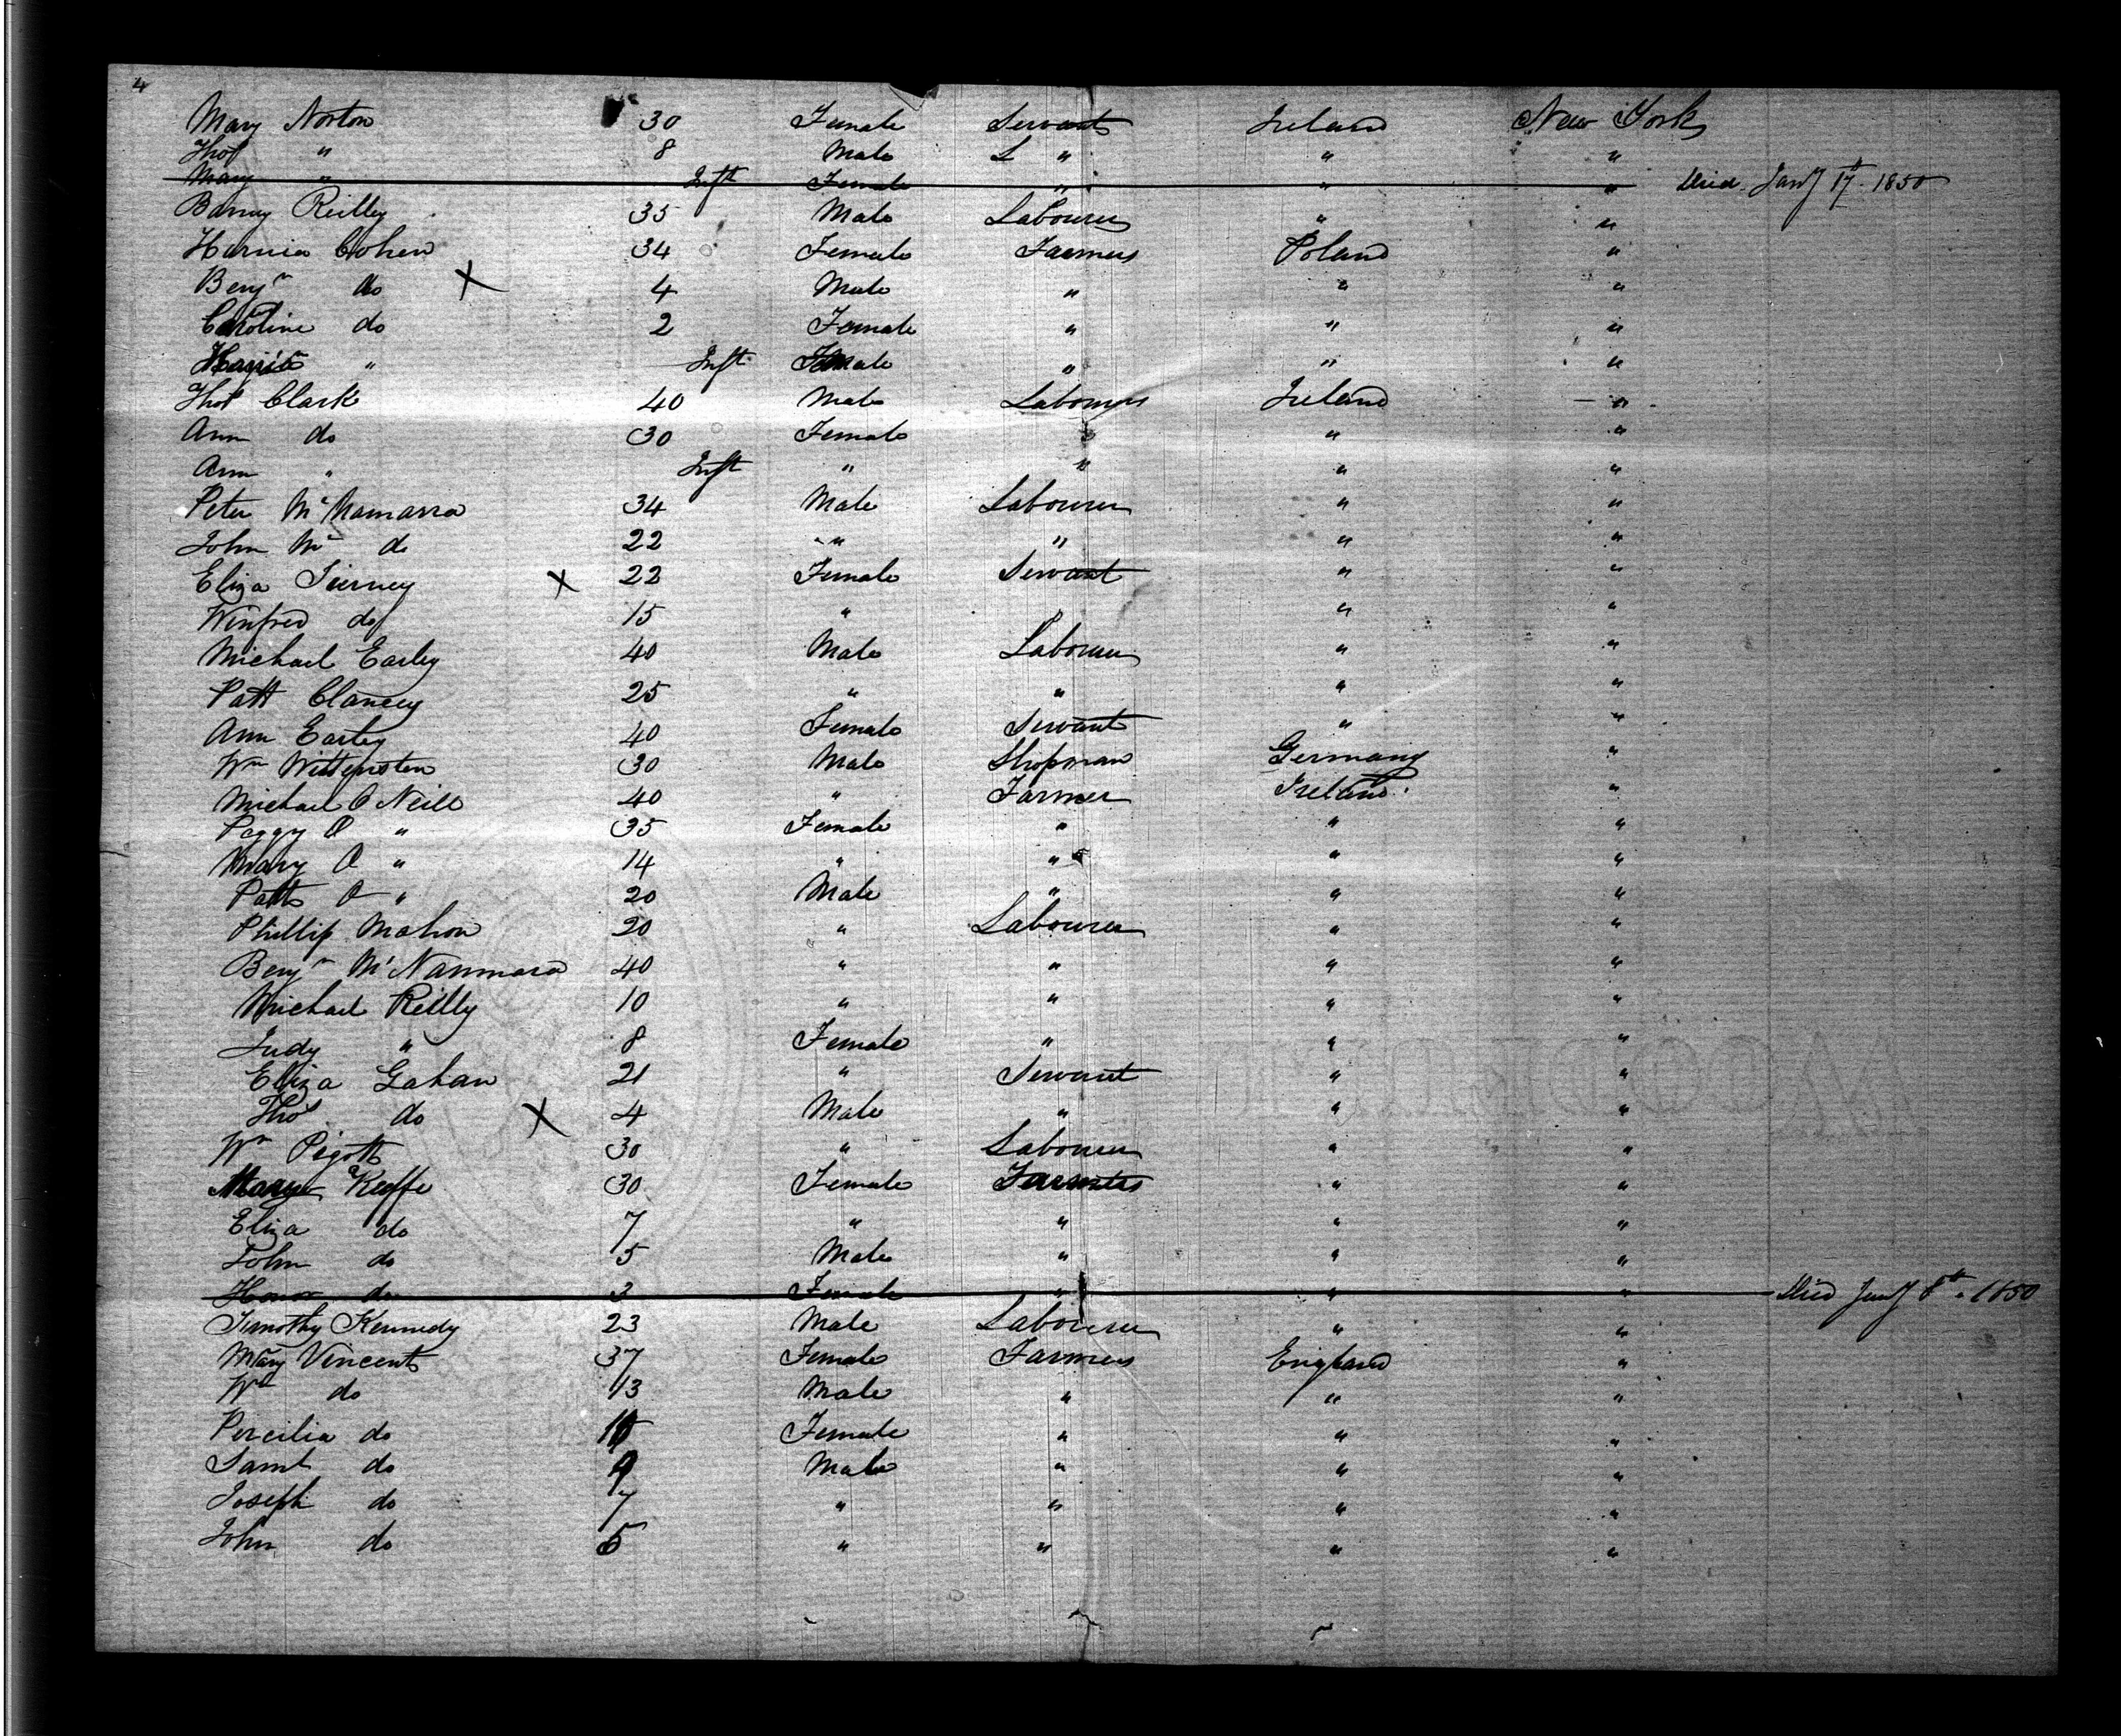 4
Mary Norton 30 Female Servants Ireland New York
Thos " 8 Male L " " "
Mary " Inft Female " " " Died Jany 17th 1850
Barny Reilly 35 Male Labourer " "
Cohen 34 Female Farmers Poland "
Benjn do X 4 Male " " "
Caroline do 2 Female " " "
" Inft Male " " "
Thos Clark 40 Male Labourers Ireland "
Ann do 30 Female " " "
Ann " Inft " " " "
Peter McNamarra 34 Male Labourer " "
John Mc do 22 " " " "
Eliza Tierney X 22 Female Servant " "
Winfred do 15 " " "
Michael Earley 40 Male Labourer " "
Patt Clancey 25 " " " "
Ann Earley 40 Female Servant " "
Wm Wittensten 30 Male Shopman Germany "
Michael O Neill 40 " Farmer Ireland "
Peggy O " 35 Female " " "
Mary O " 14 " " " "
Patt O " 20 Male " " "
Phillip Mahon 20 " Labourer " "
Benjn McNanmara 40 " " " "
Michael Reilly 10 " " " "
Judy " 8 Female " " "
Eliza Gahan 21 " Servant " "
Thos do X 4 Male " " "
Wm Pigott 30 " Labourer " "
Mary Keeffe 30 Female Farmers " "
Eliza do 7 " " " "
John do 5 Male " " "
Honor do 3 Female " " " Died Jany 8th 1850
Timothy Kennedy 23 Male Labourer " "
Mary Vincent 37 Female Farmers England "
Wm do 13 Male " " "
Percilia do Female " " "
Saml do 9 Male " " "
Joseph do 7 " " " "
John do 5 " " " "